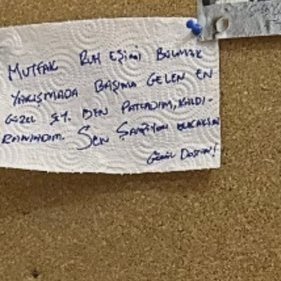 MUTFAK RUH EŞİMİ BULMAK
YARIŞMADA BAŞIMA GELEN EN
GÜZEL ŞEY. BEN PATLADIM, KALDI-
RAMADIM. SEN ŞAMPİYON OLACAKSIN
DOSTUN!